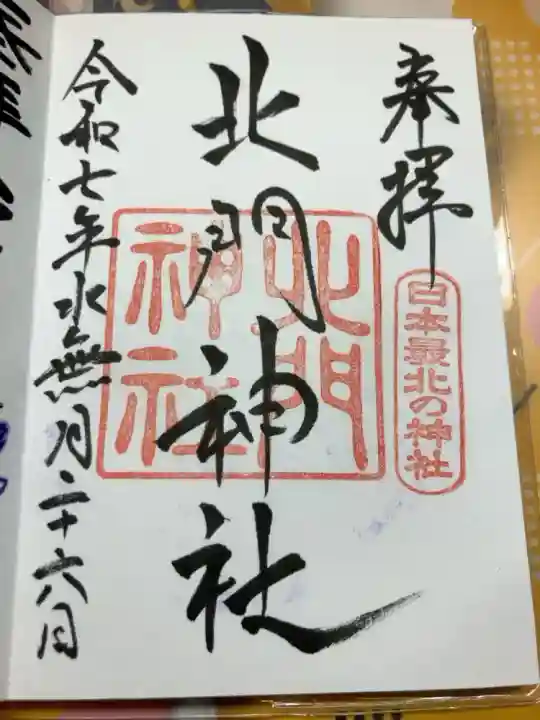 奉拝
日本最北の神社
北門神社
北門
神社
令和七年水無月二十六日